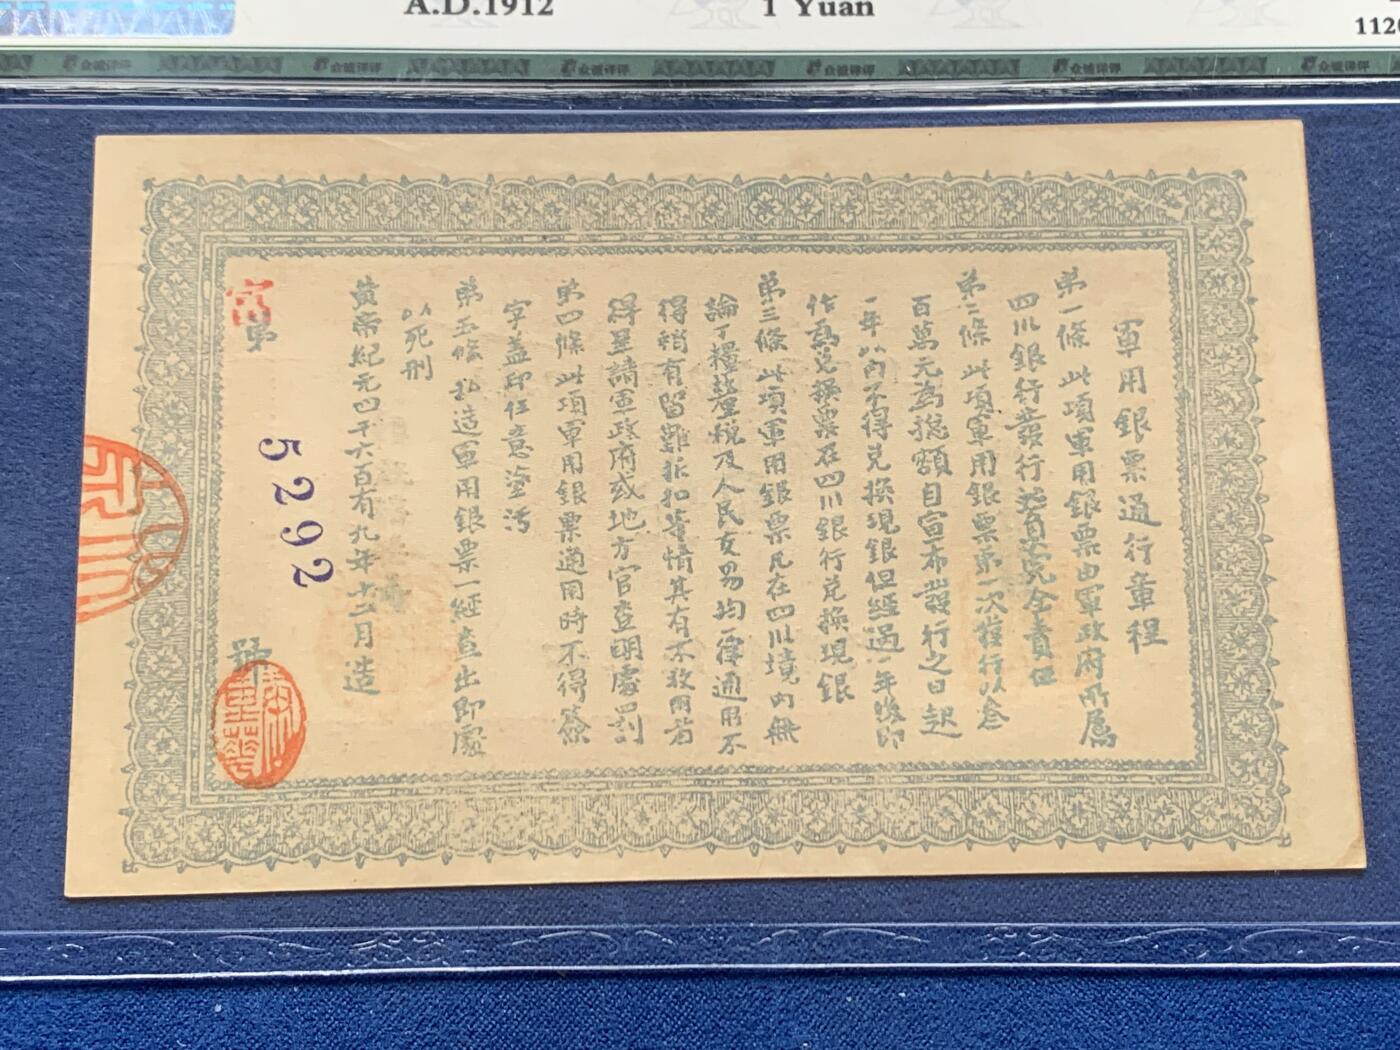 A.D.1912
1 Yuan
112
众诚评评 众诚评评 众诚评评 众诚评评 众诚评评 众诚评评
軍用銀票通行章程
第一條 此項軍用銀票由軍政府所屬
四川銀行發行
第二條 此項軍用銀票第一次發行以叁
百萬元為總額自宣布發行之日起
一年以內不得兌換現銀但經過一年後即
作為兌換票在四川銀行兌換現銀
第三條 此項軍用銀票凡在四川境內無
論丁糧釐稅及人民交易均一律通用不
得稍有留難折扣等情其有不收用者
得呈請軍政府或地方官查明處罰
第四條 此項軍用銀票通用時不得簽
字蓋印任意塗污
第五條 私造軍用銀票一經查出即處
以死刑
黃帝紀元四千六百有九年十二月造
富
第
5292
號